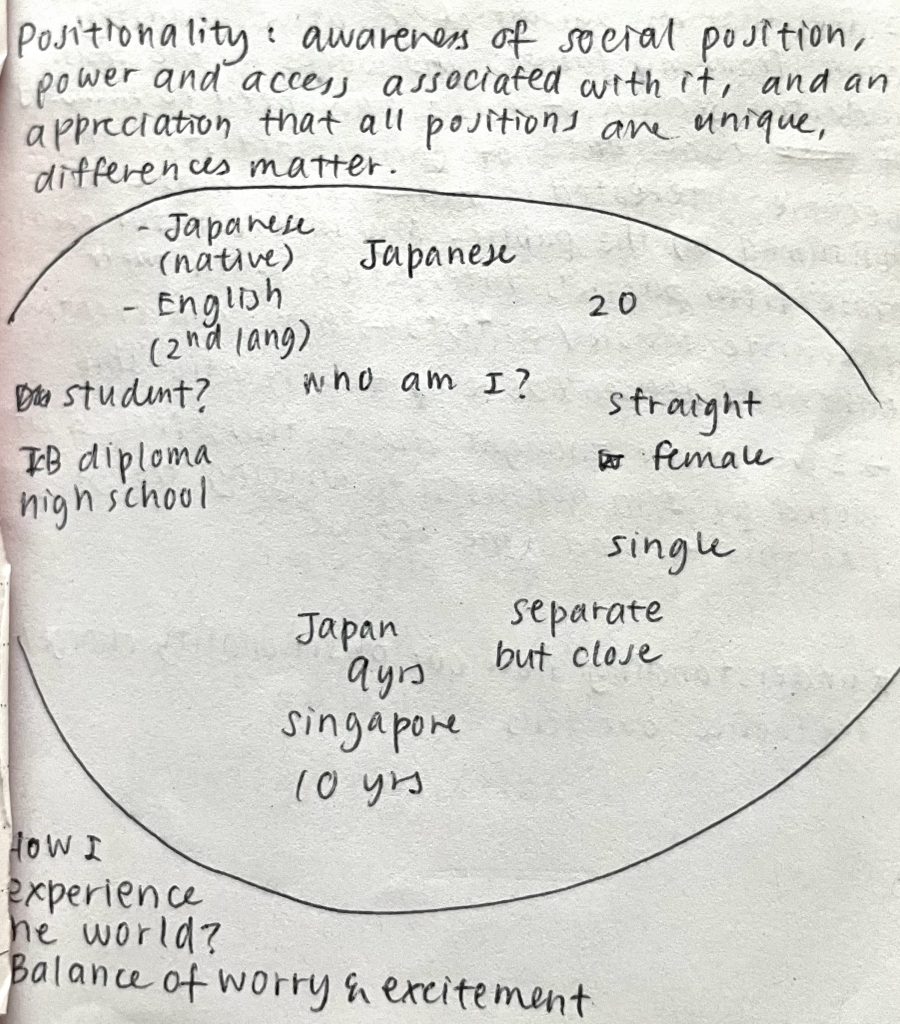 Positionality : awareness of social position,
power and access associated with it, and an
appreciation that all positions are unique,
differences matter.
- Japanese
(native)
Japanese
- English
(2nd lang)
20
student?
who am I?
straight
female
IB diploma
high school
single
Japan
9 yrs
singapore
10 yrs
separate
but close
How I
experience
he world?
Balance of worry & excitement